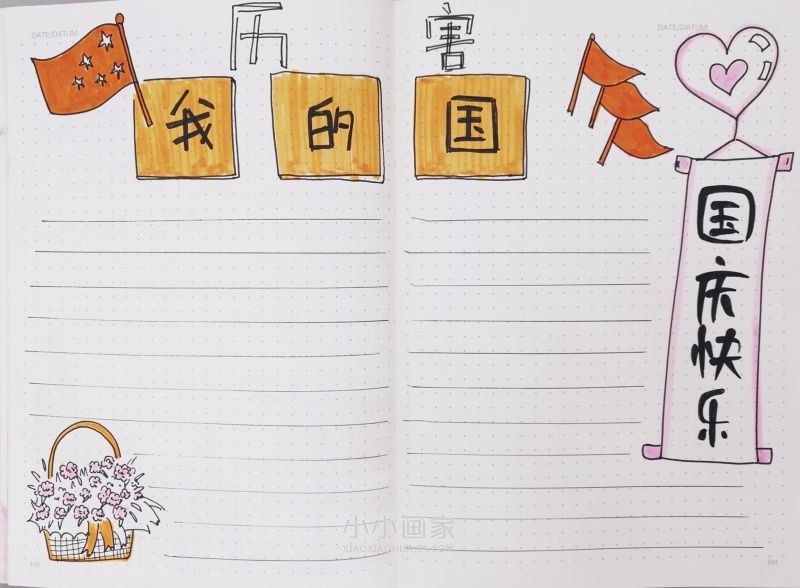 DATE/DATUM:
DATE/DATUM:
历害
我的国
国庆快乐
小小画家
XIAOXIAOHUAJIA.COM
100
101